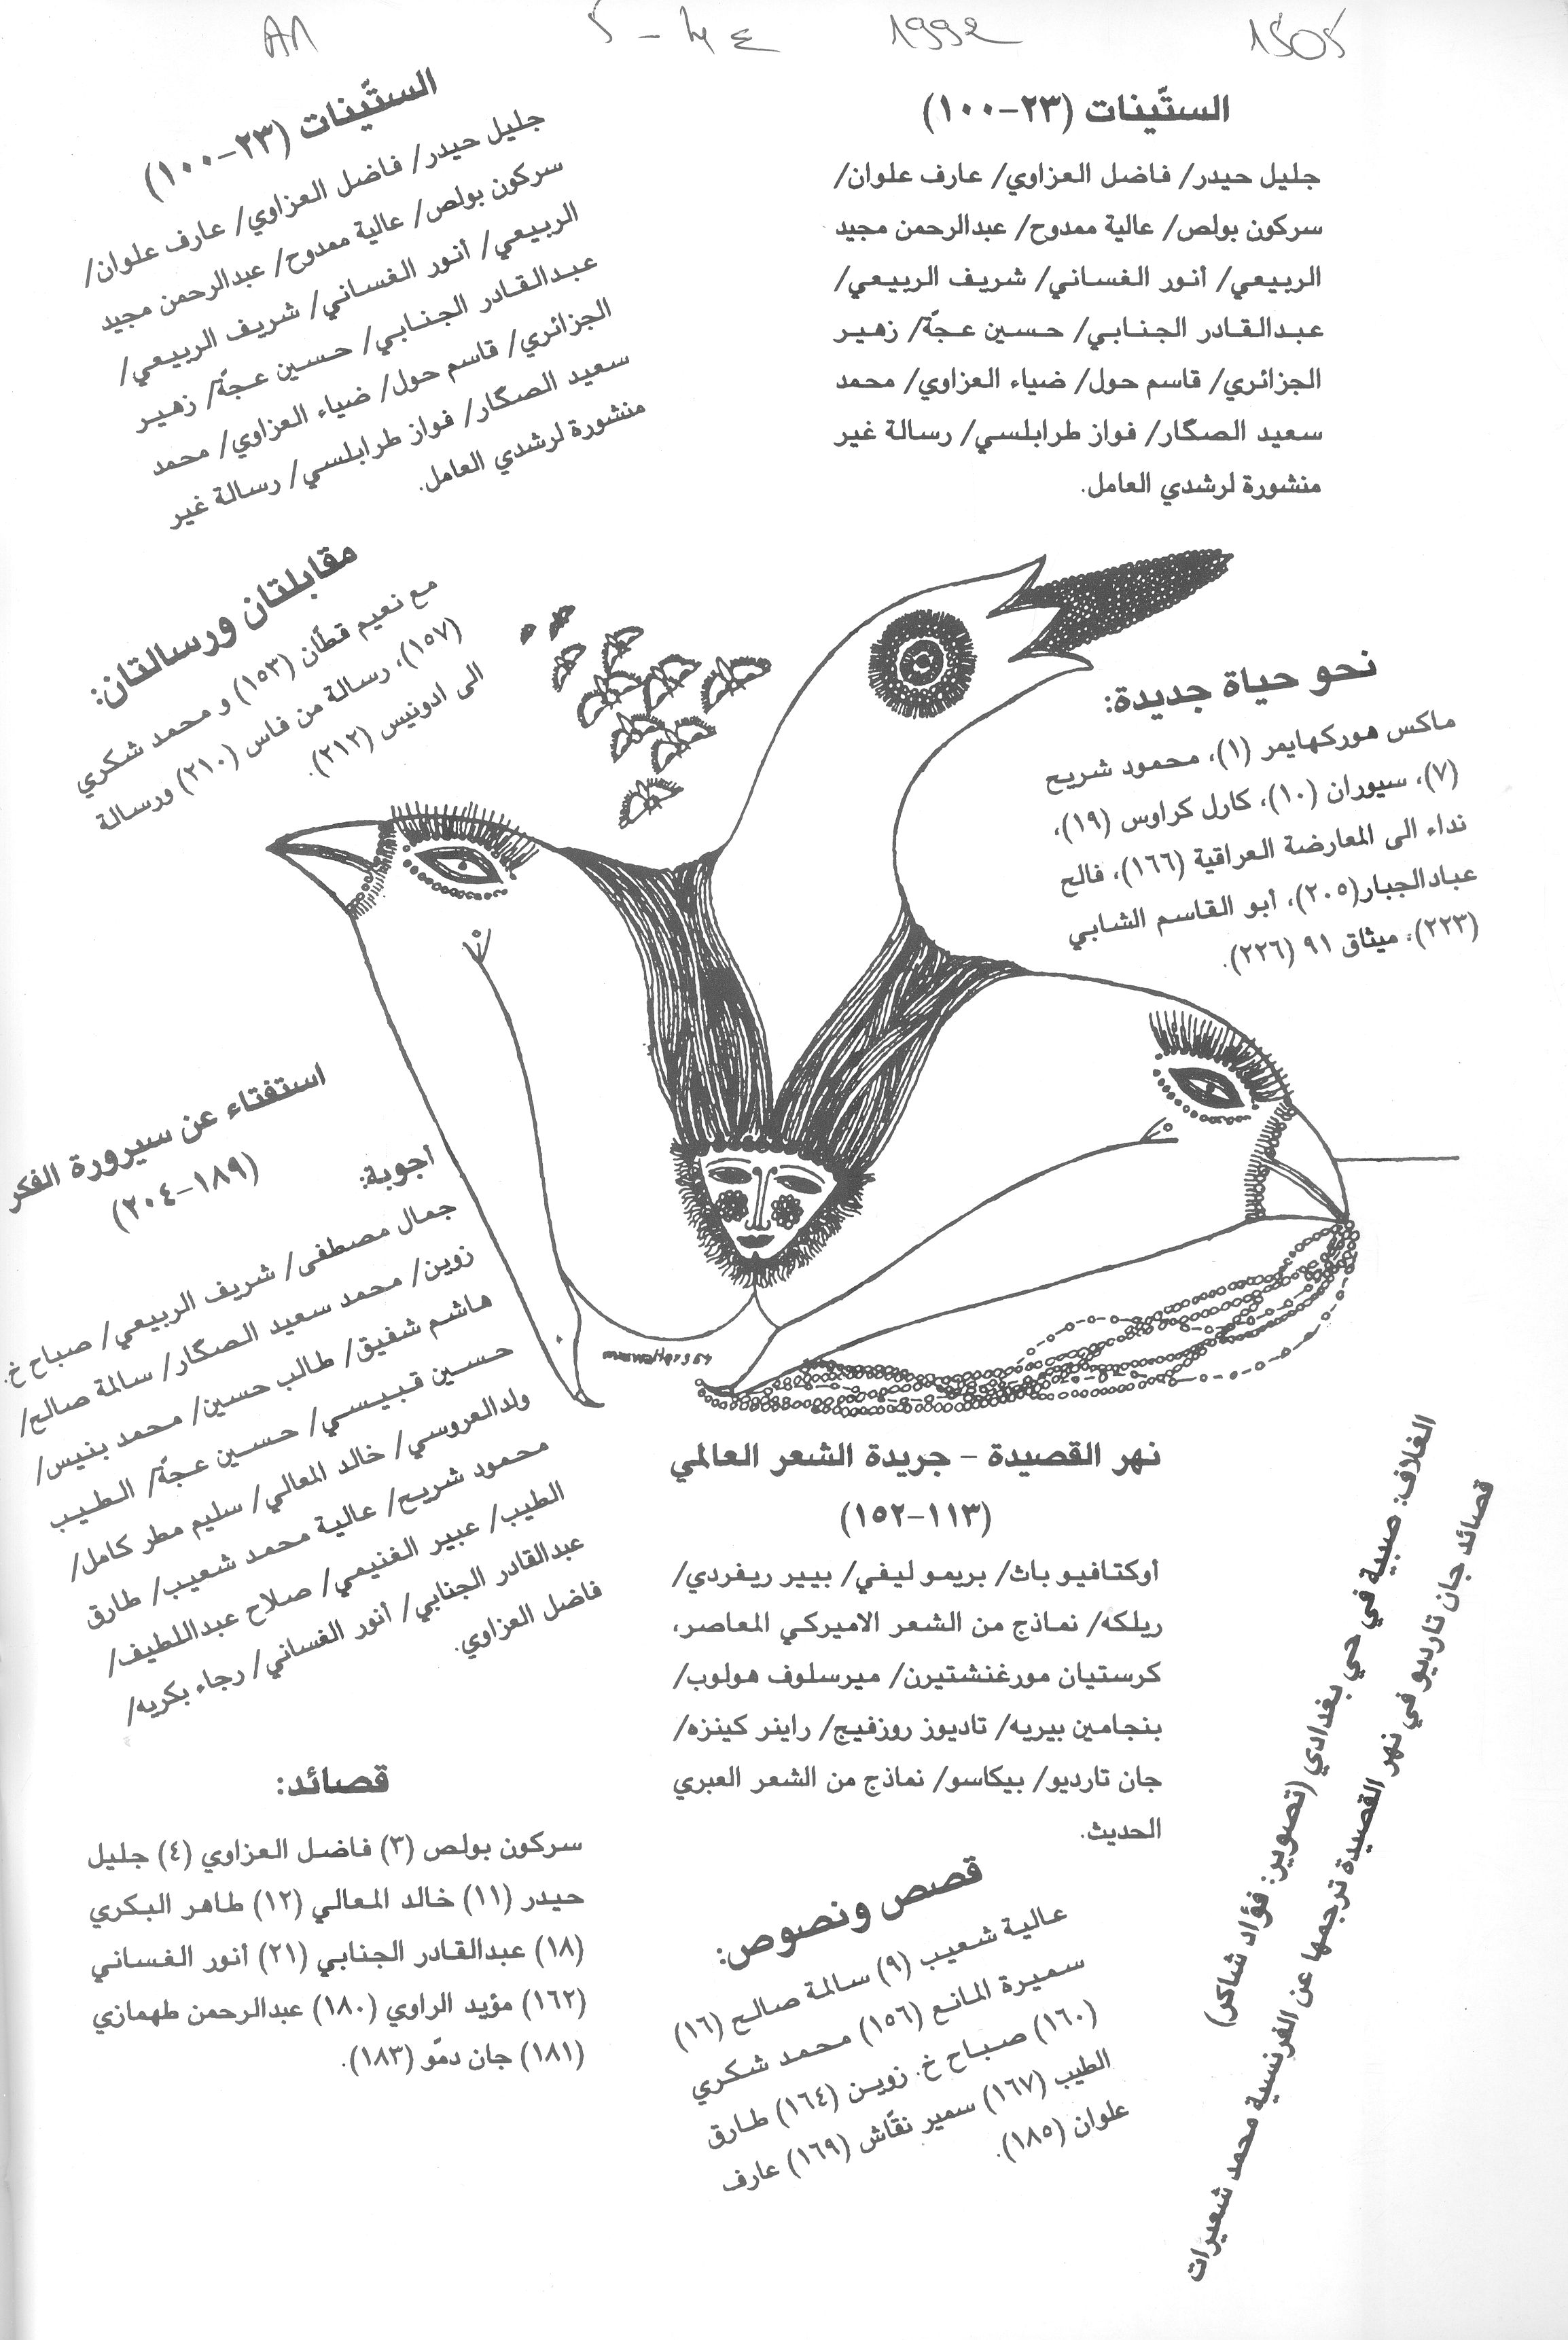 1992
1505
الستّينات (٢٣-١٠٠)
جليل حيدر/ فاضل العزاوي/ عارف علوان/
سركون بولص/ عالية ممدوح/ عبدالرحمن مجيد
الربيعي/ أنور الغساني/ شريف الربيعي/
عبدالقادر الجنابي/ حسين عجّة/ زهير
الجزائري/ قاسم حول/ ضياء العزاوي/ محمد
سعيد الصگار/ فواز طرابلسي/ رسالة غير
منشورة لرشدي العامل.
الستّينات (٢٣-١٠٠)
جليل حيدر/ فاضل العزاوي/ عارف علوان/
سركون بولص/ عالية ممدوح/ عبدالرحمن مجيد
الربيعي/ أنور الغساني/ شريف الربيعي/
عبدالقادر الجنابي/ حسين عجّة/ زهير
الجزائري/ قاسم حول/ ضياء العزاوي/ محمد
سعيد الصگار/ فواز طرابلسي/ رسالة غير
منشورة لرشدي العامل.
نحو حياة جديدة:
ماكس هوركهايمر (١)، محمود شريح
(٧)، سيوران (١٠)، كارل كراوس (١٩)،
نداء الى المعارضة العراقية (١٦٦)، فالح
عبادالجبار(٢٠٥)، أبو القاسم الشابي
(٢٢٣)، ميثاق ٩١ (٢٢٦).
مقابلتان ورسالتان:
مع نعيم قطّان (١٥٣) و محمد شكري
(١٥٧)، رسالة من فاس (٢١٠) ورسالة
الى ادونيس (٢١٢).
استفتاء عن سيرورة الفكر
(١٨٩-٢٠٤)
أجوبة:
جمال مصطفى/ شريف الربيعي/ صباح خ.
زوين/ محمد سعيد الصگار/ سالمة صالح/
هاشم شفيق/ طالب حسين/ محمد بنيس/
حسين قبيسي/ حسين عجّة/ الطيب
ولدالعروسي/ خالد المعالي/ سليم مطر كامل/
محمود شريح/ عالية محمد شعيب/ طارق
الطيب/ عبير الغنيمي/ صلاح عبداللطيف/
عبدالقادر الجنابي/ أنور الغساني/ رجاء بكريه/
فاضل العزاوي.
نهر القصيدة - جريدة الشعر العالمي
(١١٣-١٥٢)
أوكتافيو باث/ بريمو ليفي/ بيير ريفردي/
ريلكه/ نماذج من الشعر الاميركي المعاصر،
كرستيان مورغنشتيرن/ ميرسلوف هولوب/
بنجامين بيريه/ تاديوز روزفيج/ راينر كينزه/
جان تارديو/ بيكاسو/ نماذج من الشعر العبري
الحديث.
الغلاف: صبية في حي بغدادي (تصوير: فؤاد شاكر)
قصائد جان تارديو في نهر القصيدة ترجمها عن الفرنسية محمد شعيرات
قصائد:
سركون بولص (٣) فاضل العزاوي (٤) جليل
حيدر (١١) خالد المعالي (١٢) طاهر البكري
(١٨) عبدالقادر الجنابي (٢١) أنور الغساني
(١٦٢) مؤيد الراوي (١٨٠) عبدالرحمن طهمازي
(١٨١) جان دمّو (١٨٣).
قصص ونصوص:
عالية شعيب (٩) سالمة صالح (١٦)
سميرة المانع (١٥٦) محمد شكري
(١٦٠) صباح خ. زوين (١٦٤) طارق
الطيب (١٦٧) سمير نقّاش (١٦٩) عارف
علوان (١٨٥).